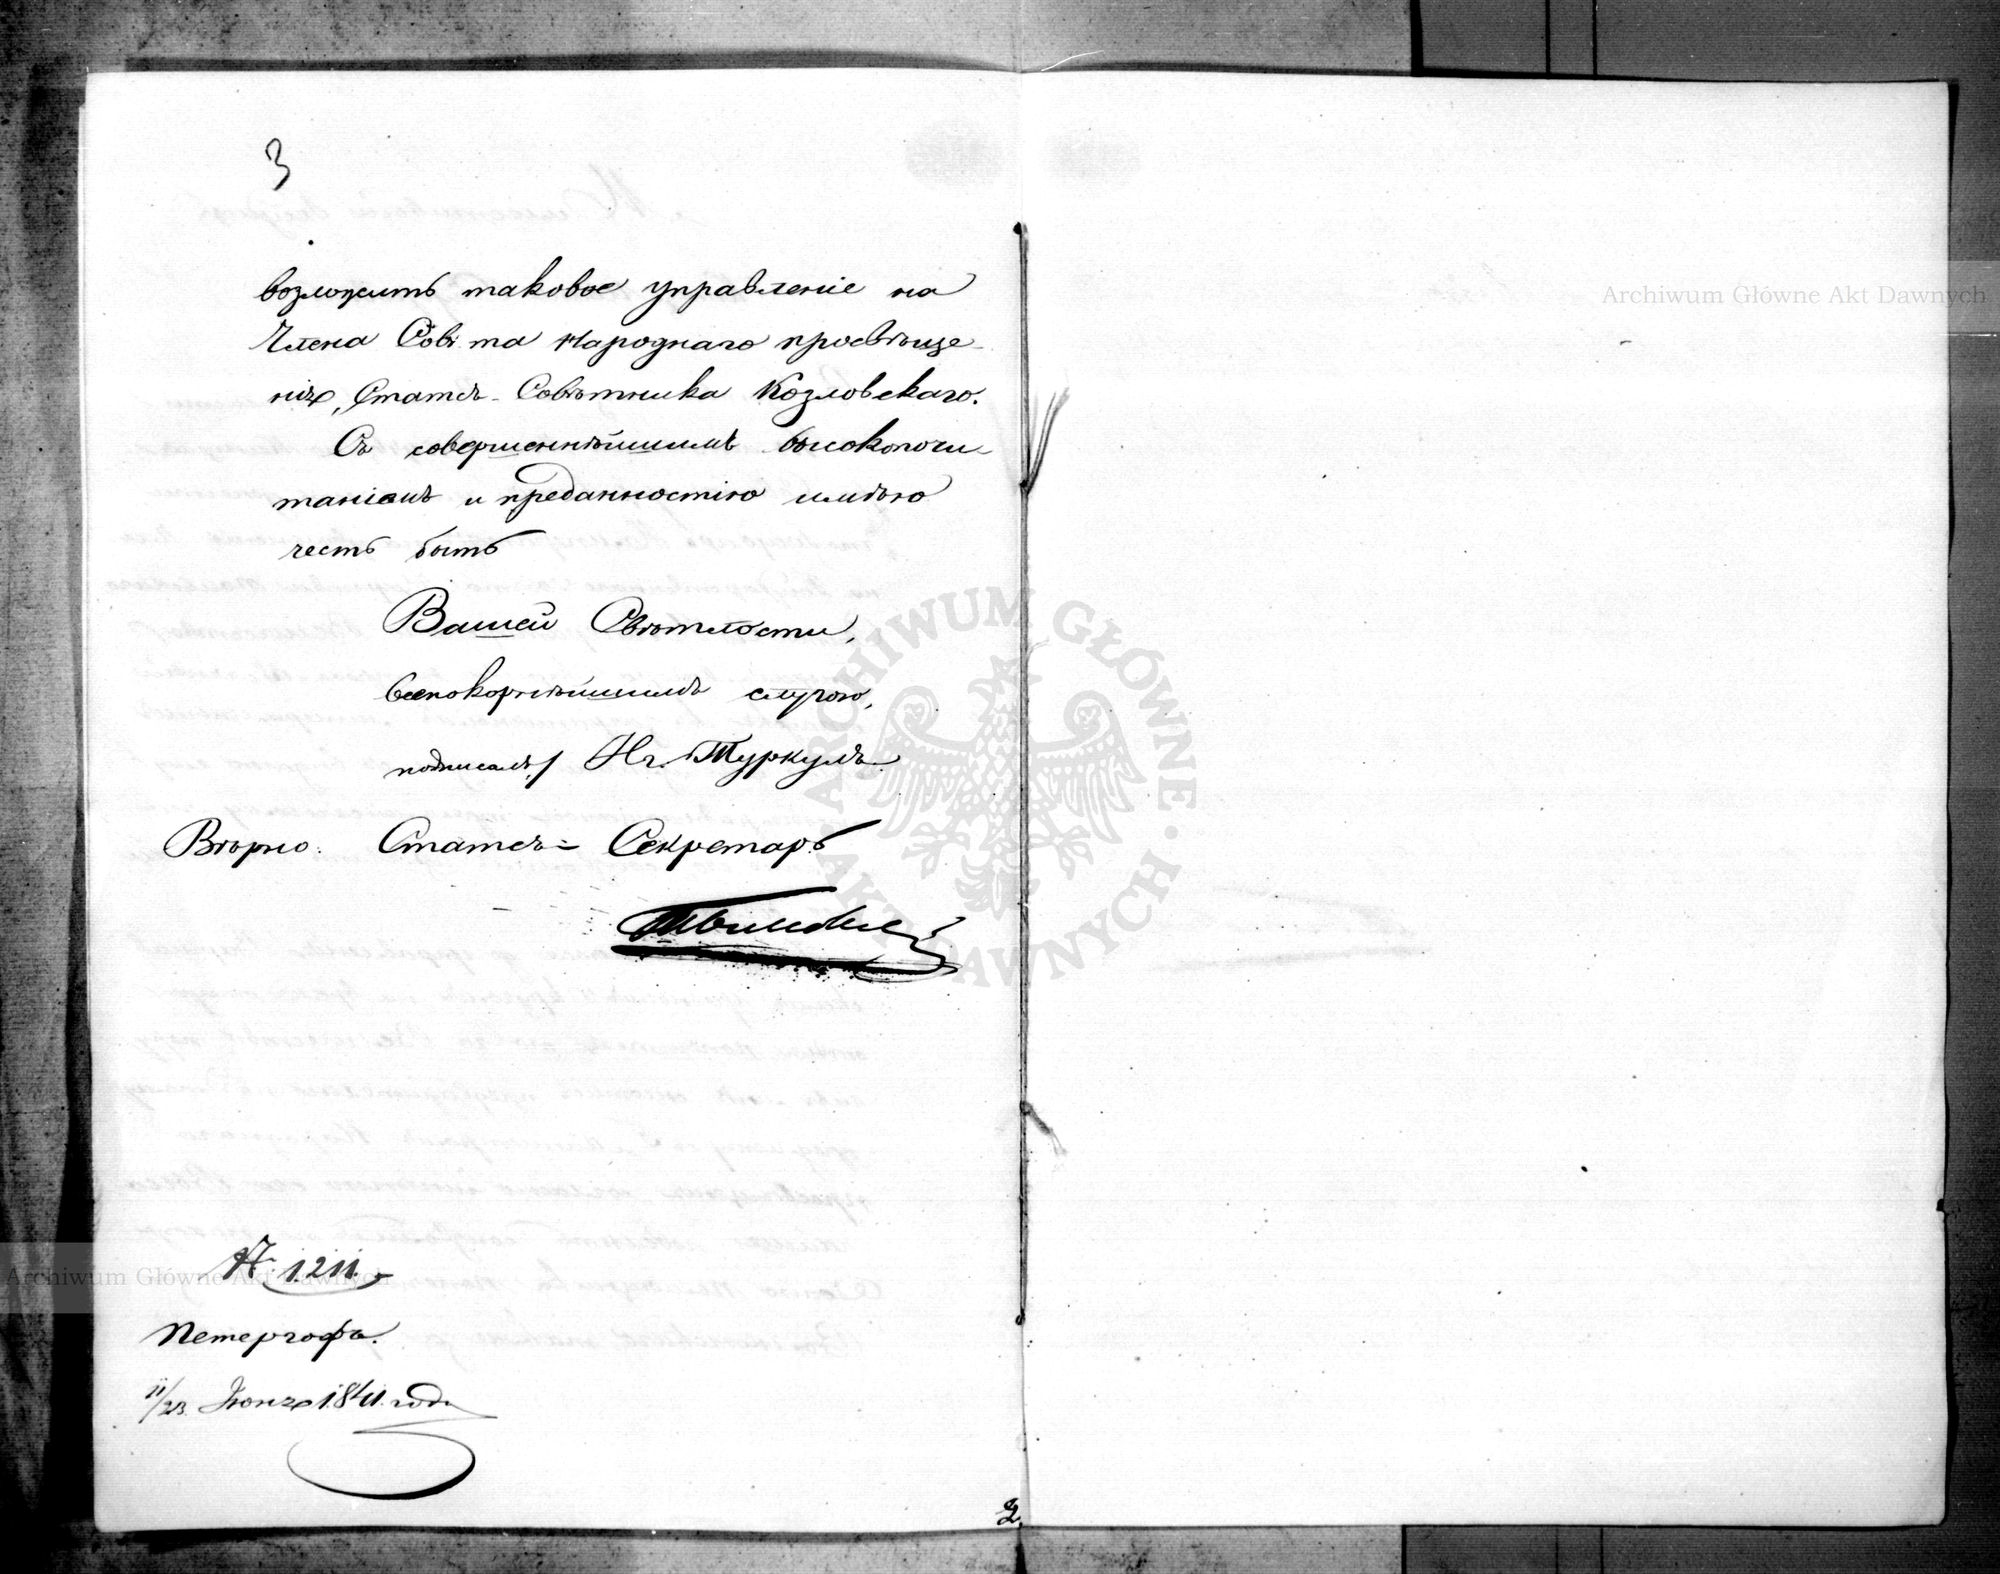 3
возложить таковое управленіе на
Члена Совѣта Народнаго просвѣще-
нія, Статсъ-Совѣтника Козловскаго.
Съ совершеннѣйшимъ высокопочи-
таніемъ и преданностію имѣю
честь быть
Вашей Свѣтлости,
всепокорнѣйшимъ слугою,
подписалъ/ Иг. Туркулъ.
Вѣрно: Статсъ=Секретарь
№ 1211.
Петергофъ.
11/23 Іюня 1841 года
2.
Archiwum Główne Akt Dawnych
Archiwum Główne Akt Dawnych
ARCHIWUM GŁÓWNE AKT DAWNYCH